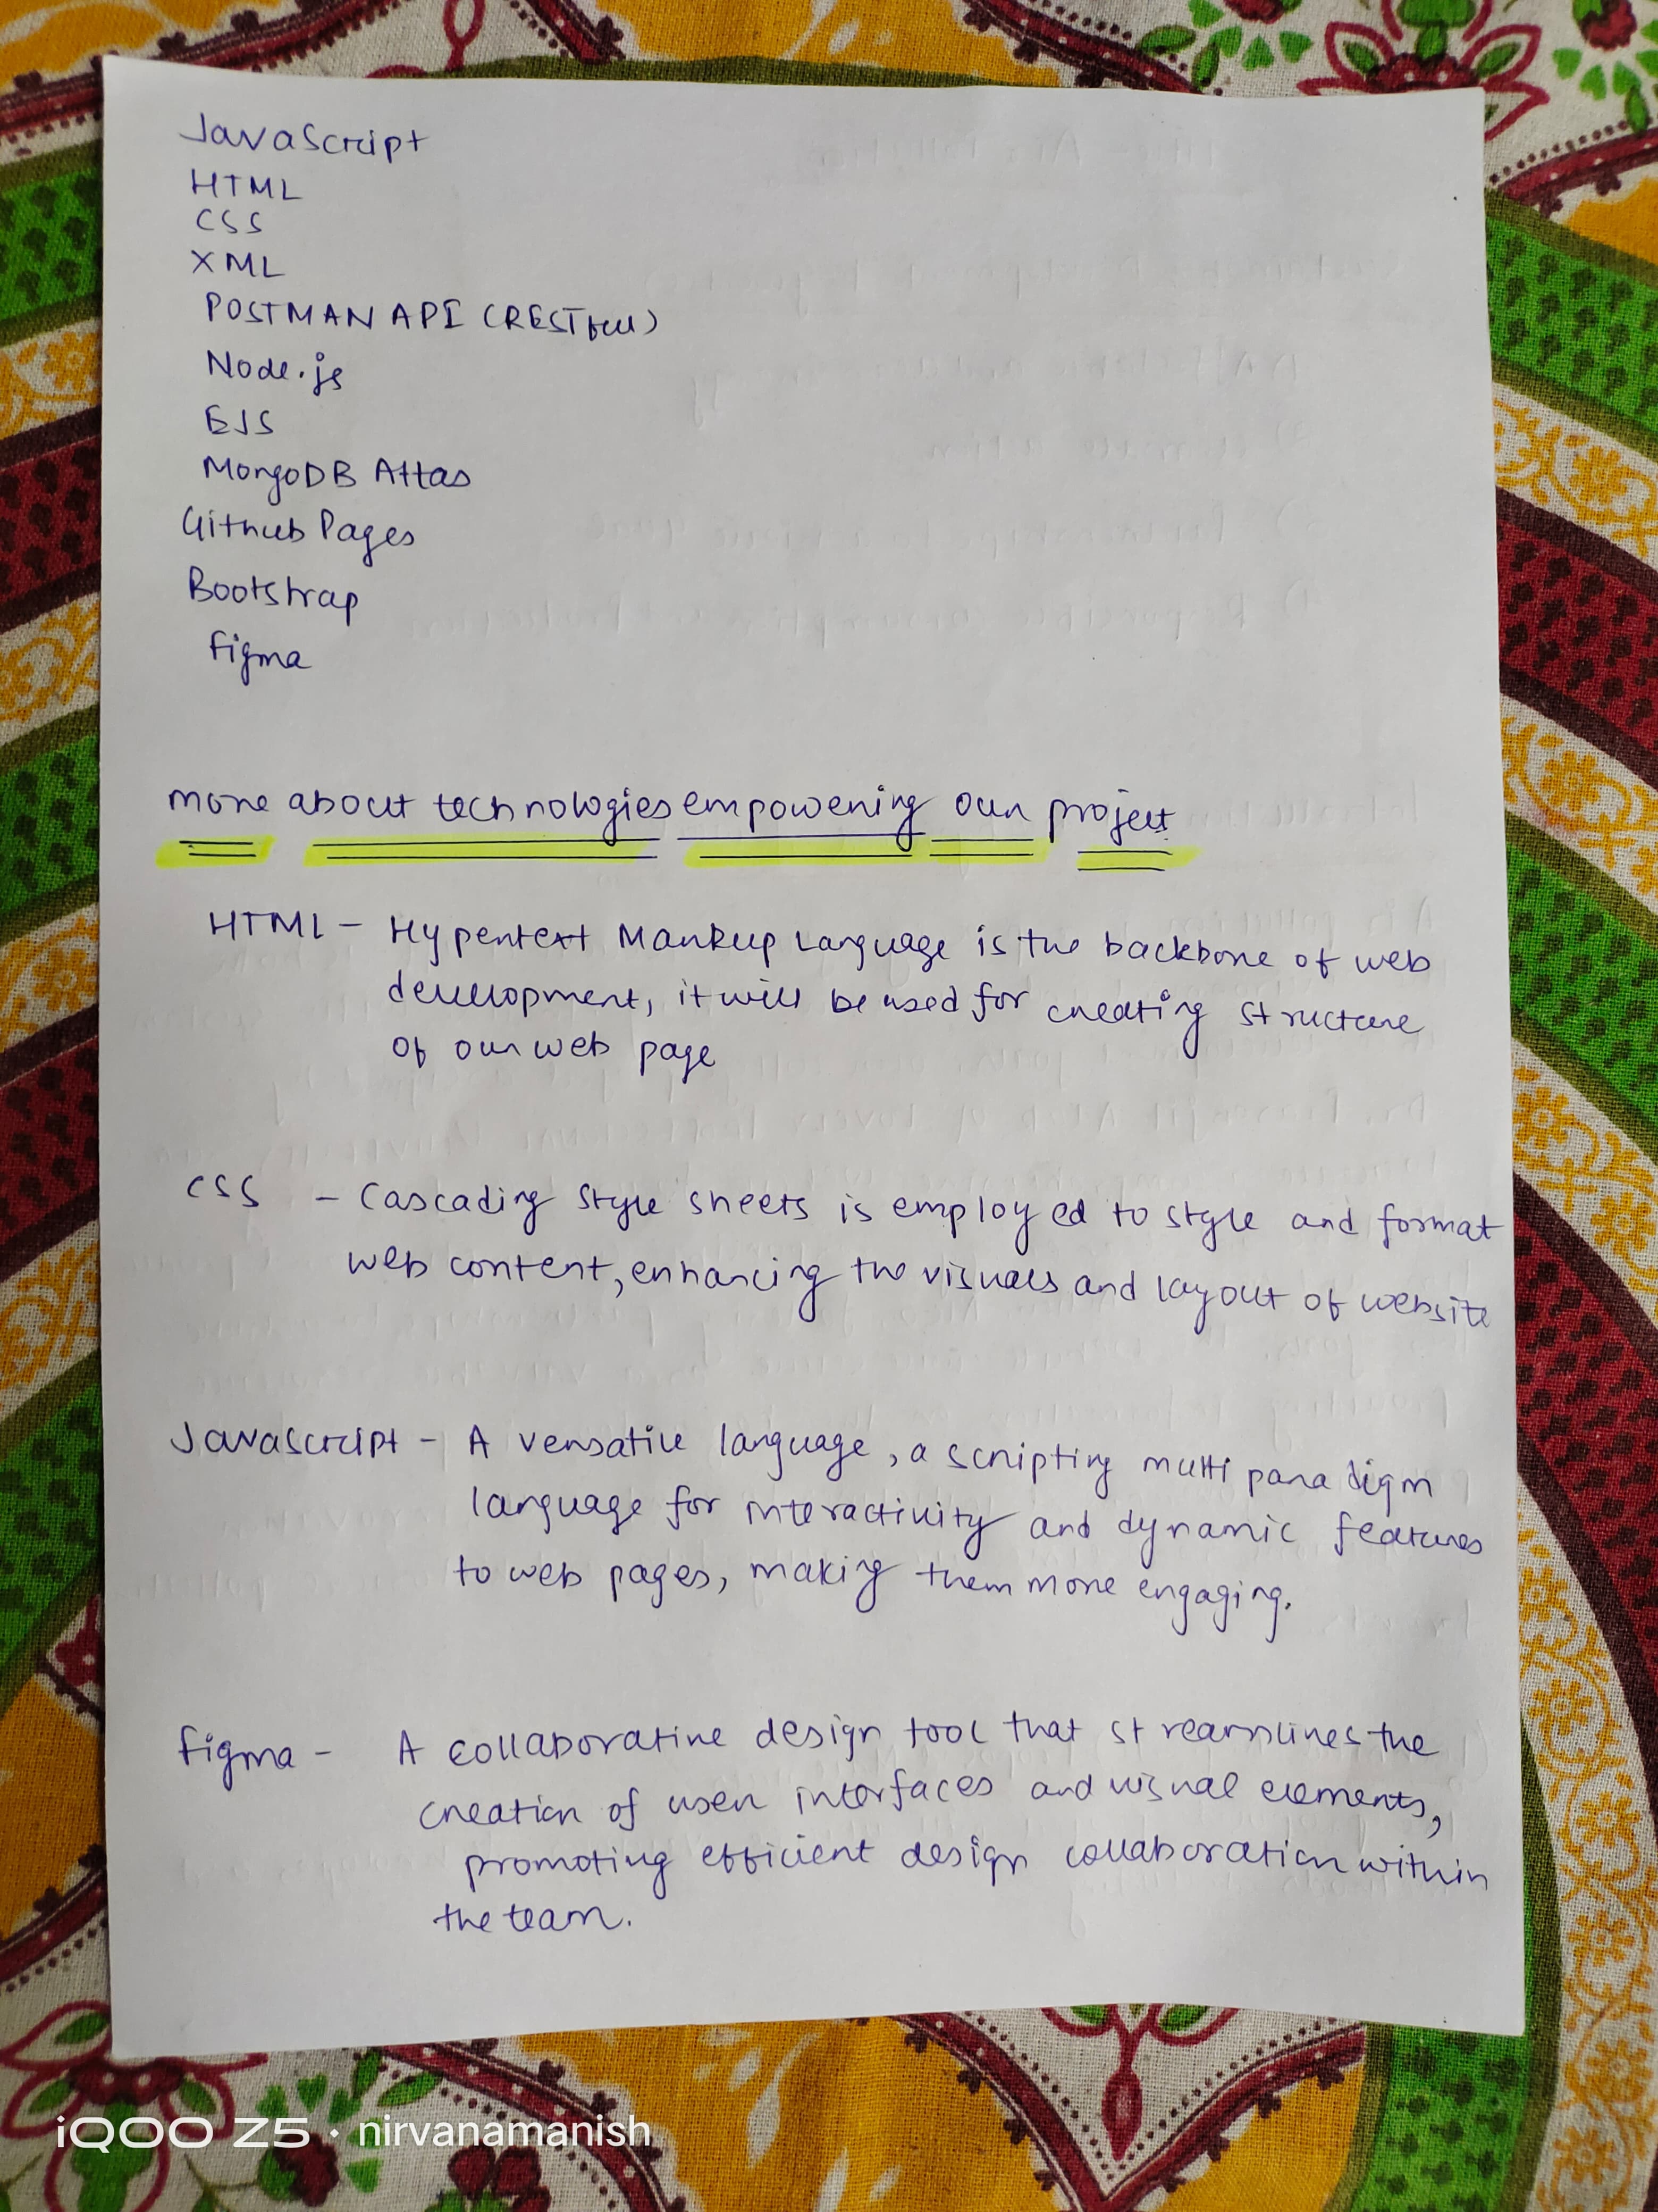 JavaScript
HTML
CSS
XML
POSTMAN API (RESTful)
Node.js
EJS
MongoDB Atlas
Github Pages
Bootstrap
figma
more about technologies empowering our project
HTML - Hypertext Markup Language is the backbone of web
development, it will be used for creating structure
of our web page
CSS - Cascading Style sheets is employed to style and format
web content, enhancing the visuals and layout of website
Javascript - A versatile language, a scripting multi paradigm
language for interactivity and dynamic features
to web pages, making them more engaging.
figma - A collaborative design tool that streamlines the
creation of user interfaces and visual elements,
promoting efficient design collaboration within
the team.
iQOO Z5 · nirvanamanish